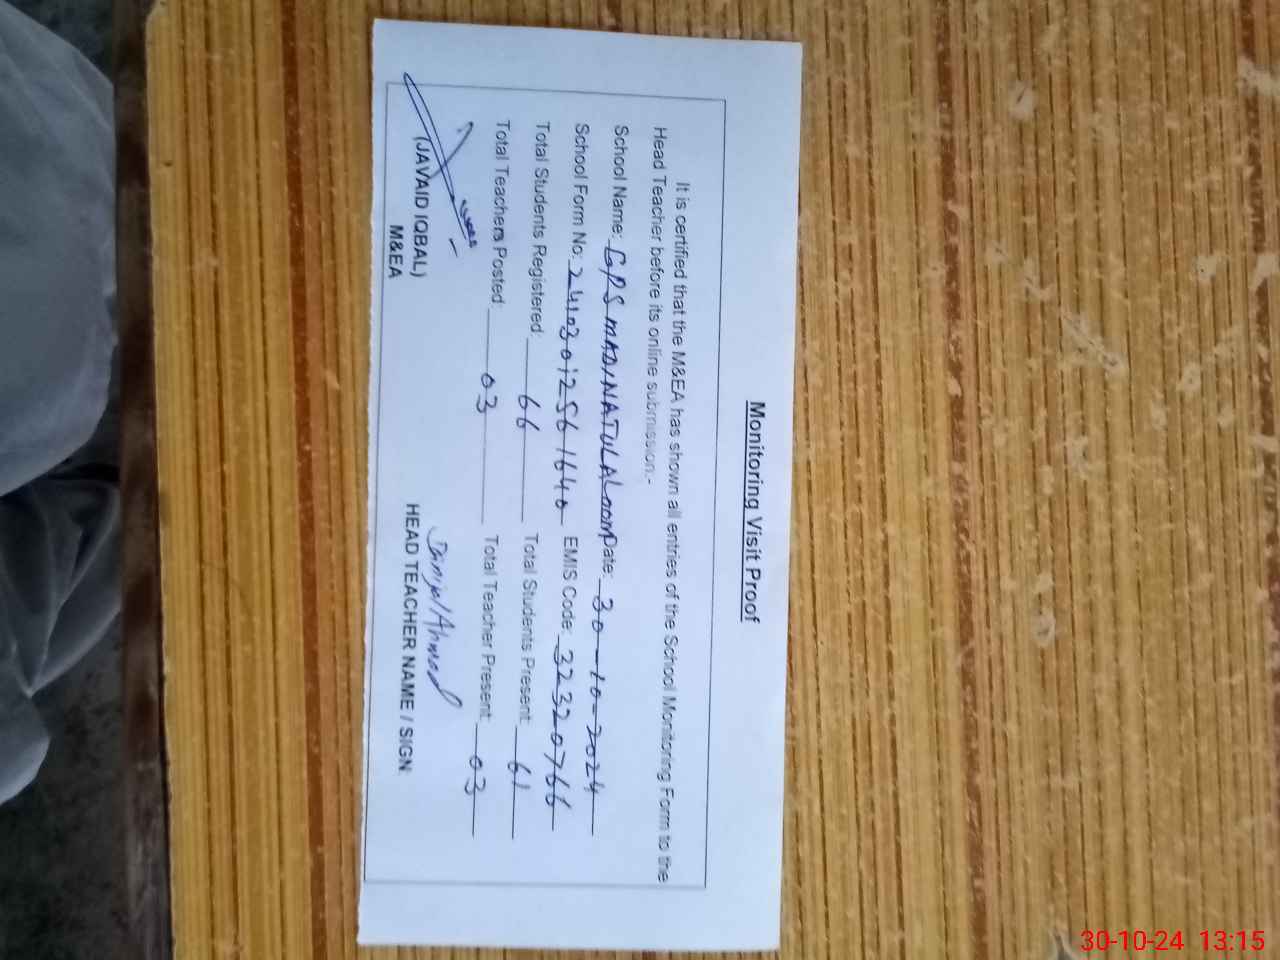 Monitoring Visit Proof
It is certified that the M&EA has shown all entries of the School Monitoring Form to the
Head Teacher before its online submission:-
School Name: GPS MADINATULALOOM Date: 30-10-2024
School Form No: 24103012561640 EMIS Code: 32320766
Total Students Registered: 66 Total Students Present: 61
Total Teachers Posted: 03 Total Teacher Present: 03
(JAVAID IQBAL)
M&EA
Ahmad
HEAD TEACHER NAME / SIGN
30-10-24 13:15